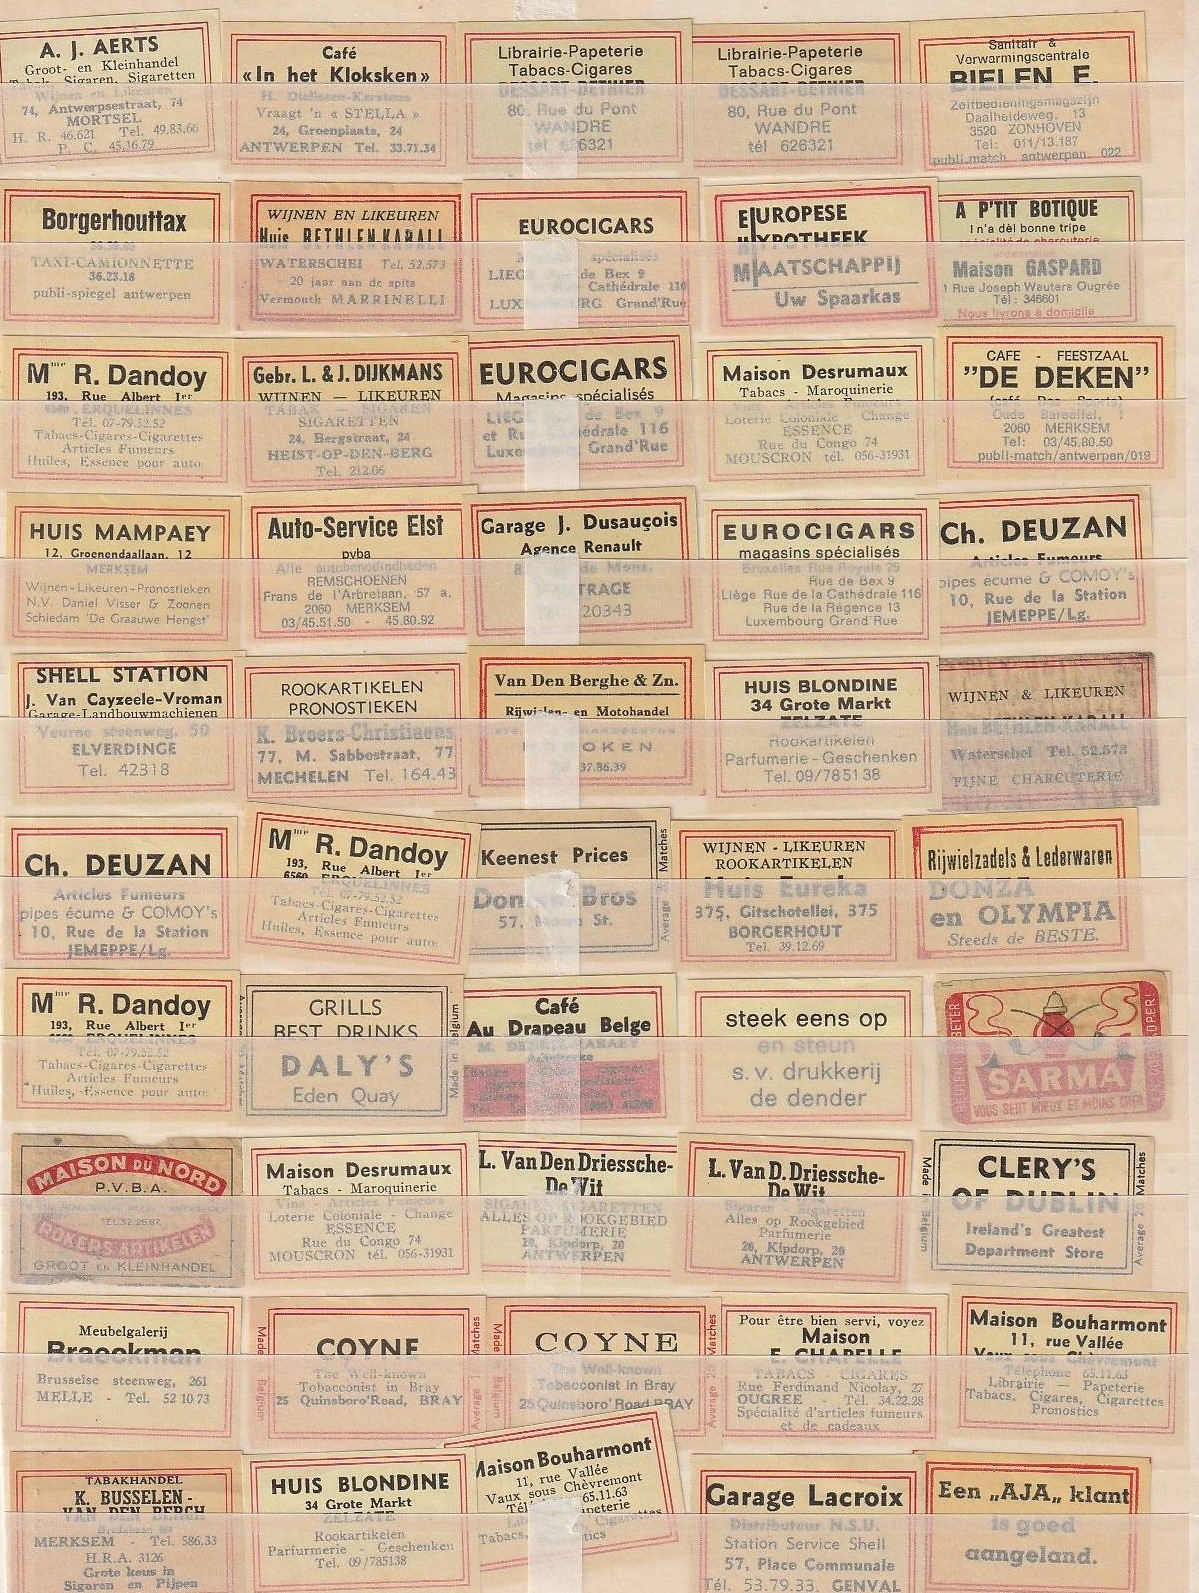 A. J. AERTS
Groot- en Kleinhandel
Tabak, Sigaren, Sigaretten
Wijnen en Likeuren
74, Antwerpsestraat, 74
MORTSEL
H. R. 46.621 Tel. 49.83.66
P. C. 45.16.79
Café
«In het Kloksken»
H. Dielissen-Kerstens
Vraagt 'n « STELLA »
24, Groenplaats, 24
ANTWERPEN Tel. 33.71.34
Librairie-Papeterie
Tabacs-Cigares
DESSART-DETHIER
80, Rue du Pont
WANDRE
tél 626321
Librairie-Papeterie
Tabacs-Cigares
DESSART-DETHIER
80, Rue du Pont
WANDRE
tél 626321
Sanitair &
Verwarmingscentrale
BIELEN E.
Zelfbedieningsmagazijn
Daalheideweg, 13
3520 ZONHOVEN
Tel: 011/13.187
publi.match antwerpen 022
Borgerhouttax
36.23.68
TAXI-CAMIONNETTE
36.23.18
publi-spiegel antwerpen
WIJNEN EN LIKEUREN
Huis BETHLEN KARALL
WATERSCHEI Tel. 52.573
20 jaar aan de spits
Vermouth MARRINELLI
EUROCIGARS
spécialisés
LIEG de Bex 9
Cathédrale 116
LUX OURG Grand'Rue
EUROPESE
HYPOTHEEK
MAATSCHAPPIJ
Uw Spaarkas
A P'TIT BOTIQUE
I n'a dèl bonne tripe
spécialité de charcuterie
ardennaise
Maison GASPARD
1 Rue Joseph Wauters Ougrée
Tél: 346601
Nous livrons à domicile
Mme R. Dandoy
193, Rue Albert Ier
6560 ERQUELINNES
Tél. 07-79.52.52
Tabacs-Cigares-Cigarettes
Articles Fumeurs
Huiles, Essence pour auto
Gebr. L. & J. DIJKMANS
WIJNEN — LIKEUREN
TABAK — SIGAREN
SIGARETTEN
24, Bergstraat, 24
HEIST-OP-DEN-BERG
Tel. 212.06
EUROCIGARS
Magasins spécialisés
LIEG de Bex 9
et Ru hédrale 116
Luxe Grand'Rue
Maison Desrumaux
Tabacs - Maroquinerie
Vins - Articles Fumeurs
Loterie Coloniale - Change
ESSENCE
Rue du Congo 74
MOUSCRON tél. 056-31931
CAFE - FEESTZAAL
"DE DEKEN"
(café Des Sports)
Oude Bareellei, 1
2060 MERKSEM
Tel: 03/45.80.50
publi-match/antwerpen/019
HUIS MAMPAEY
12, Groenendaallaan, 12
MERKSEM
Wijnen-Likeuren-Pronostieken
N.V. Daniel Visser & Zoonen
Schiedam 'De Graauwe Hengst'
Auto-Service Elst
pvba
Alle autobenodigdheden
REMSCHOENEN
Frans de l'Arbrelaan, 57 a.
2060 MERKSEM
03/45.51.50 - 45.80.92
Garage J. Dusauçois
Agence Renault
de Mons.
TRAGE
20343
EUROCIGARS
magasins spécialisés
Bruxelles Rue Royale 25
Rue de Bex 9
Liège Rue de la Cathédrale 116
Rue de la Régence 13
Luxembourg Grand'Rue
Ch. DEUZAN
Articles Fumeurs
pipes écume & COMOY's
10, Rue de la Station
JEMEPPE/Lg.
SHELL STATION
J. Van Cayzeele-Vroman
Garage-Landbouwmachienen
Veurne steenweg, 50
ELVERDINGE
Tel. 42318
ROOKARTIKELEN
PRONOSTIEKEN
K. Broers-Christiaens
77, M. Sabbestraat, 77
MECHELEN Tel. 164.43
Van Den Berghe & Zn.
Rijwielen- en Motohandel
OKEN
37.86.39
HUIS BLONDINE
34 Grote Markt
ZELZATE
Rookartikelen
Parfumerie - Geschenken
Tel. 09/785138
WIJNEN & LIKEUREN
Huis BETHLEN-KARALL
Waterschei Tel. 52.573
FIJNE CHARCUTERIE
Ch. DEUZAN
Articles Fumeurs
pipes écume & COMOY's
10, Rue de la Station
JEMEPPE/Lg.
Mme R. Dandoy
193, Rue Albert Ier
6560 ERQUELINNES
Tél. 07-79.52.52
Tabacs-Cigares-Cigarettes
Articles Fumeurs
Huiles, Essence pour auto
Keenest Prices
Don Bros
57, St.
Average Matches
WIJNEN - LIKEUREN
ROOKARTIKELEN
Huis Eureka
375, Gitschotellei, 375
BORGERHOUT
Tel. 39.12.69
Rijwielzadels & Lederwaren
DONZA
en OLYMPIA
Steeds de BESTE.
Mme R. Dandoy
193, Rue Albert Ier
6560 ERQUELINNES
Tél. 07-79.52.52
Tabacs-Cigares-Cigarettes
Articles Fumeurs
Huiles, Essence pour auto
GRILLS
BEST DRINKS
DALY'S
Eden Quay
Made in Belgium
Café
Au Drapeau Belge
steek eens op
en steun
s.v. drukkerij
de dender
SARMA
VOUS SERT MIEUX ET MOINS CHER
MAISON DU NORD
P.V.B.A.
TEL. 32.25.67.
ROKERSARTIKELEN
GROOT EN KLEINHANDEL
Maison Desrumaux
Tabacs - Maroquinerie
Vins - Articles Fumeurs
Loterie Coloniale - Change
ESSENCE
Rue du Congo 74
MOUSCRON tél. 056-31931
L. Van Den Driessche-
De Wit
SIGAREN SIGARETTEN
ALLES OP ROOKGEBIED
PARFUMERIE
20, Kipdorp, 20
ANTWERPEN
L. Van D. Driessche-
De Wit
Sigaren - Sigaretten
Alles op Rookgebied
Parfumerie
20, Kipdorp, 20
ANTWERPEN
Made in Belgium
CLERY'S
OF DUBLIN
Ireland's Greatest
Department Store
Average 20 Matches
Meubelgalerij
Braeckman
Brusselse steenweg, 261
MELLE - Tel. 52 10 73
COYNE
The Well-known
Tobacconist in Bray
25 Quinsboro' Road, BRAY
Made Belgium
Average Matches
COYNE
The Well-known
Tobacconist in Bray
25 Quinsboro' Road BRAY
Made in
Average 20 Matches
Pour être bien servi, voyez
Maison
E. CHAPELLE
TABACS - CIGARES
Rue Ferdinand Nicolay, 27
OUGREE - Tél. 34.22.28
Spécialité d'articles fumeurs
et de cadeaux
Maison Bouharmont
11, rue Vallée
Vaux sous Chèvremont
Téléphone 65.11.63
Librairie — Papeterie
Tabacs, Cigares, Cigarettes
Pronostics
TABAKHANDEL
K. BUSSELEN-
VAN DEN BERGH
MERKSEM - Tel. 586.33
H.R.A. 3126
Grote keus in
Sigaren en Pijpen
HUIS BLONDINE
34 Grote Markt
ZELZATE
Rookartikelen
Parfurmerie - Geschenken
Tel. 09/785138
Maison Bouharmont
11, rue Vallée
Vaux sous Chèvremont
Tél 65.11.63
Lib peterie
Tabacs, Cigarettes
tics
Garage Lacroix
Distributeur N.S.U.
Station Service Shell
57, Place Communale
Tél. 53.79.33. GENVAL
Een „AJA„ klant
is goed
aangeland.